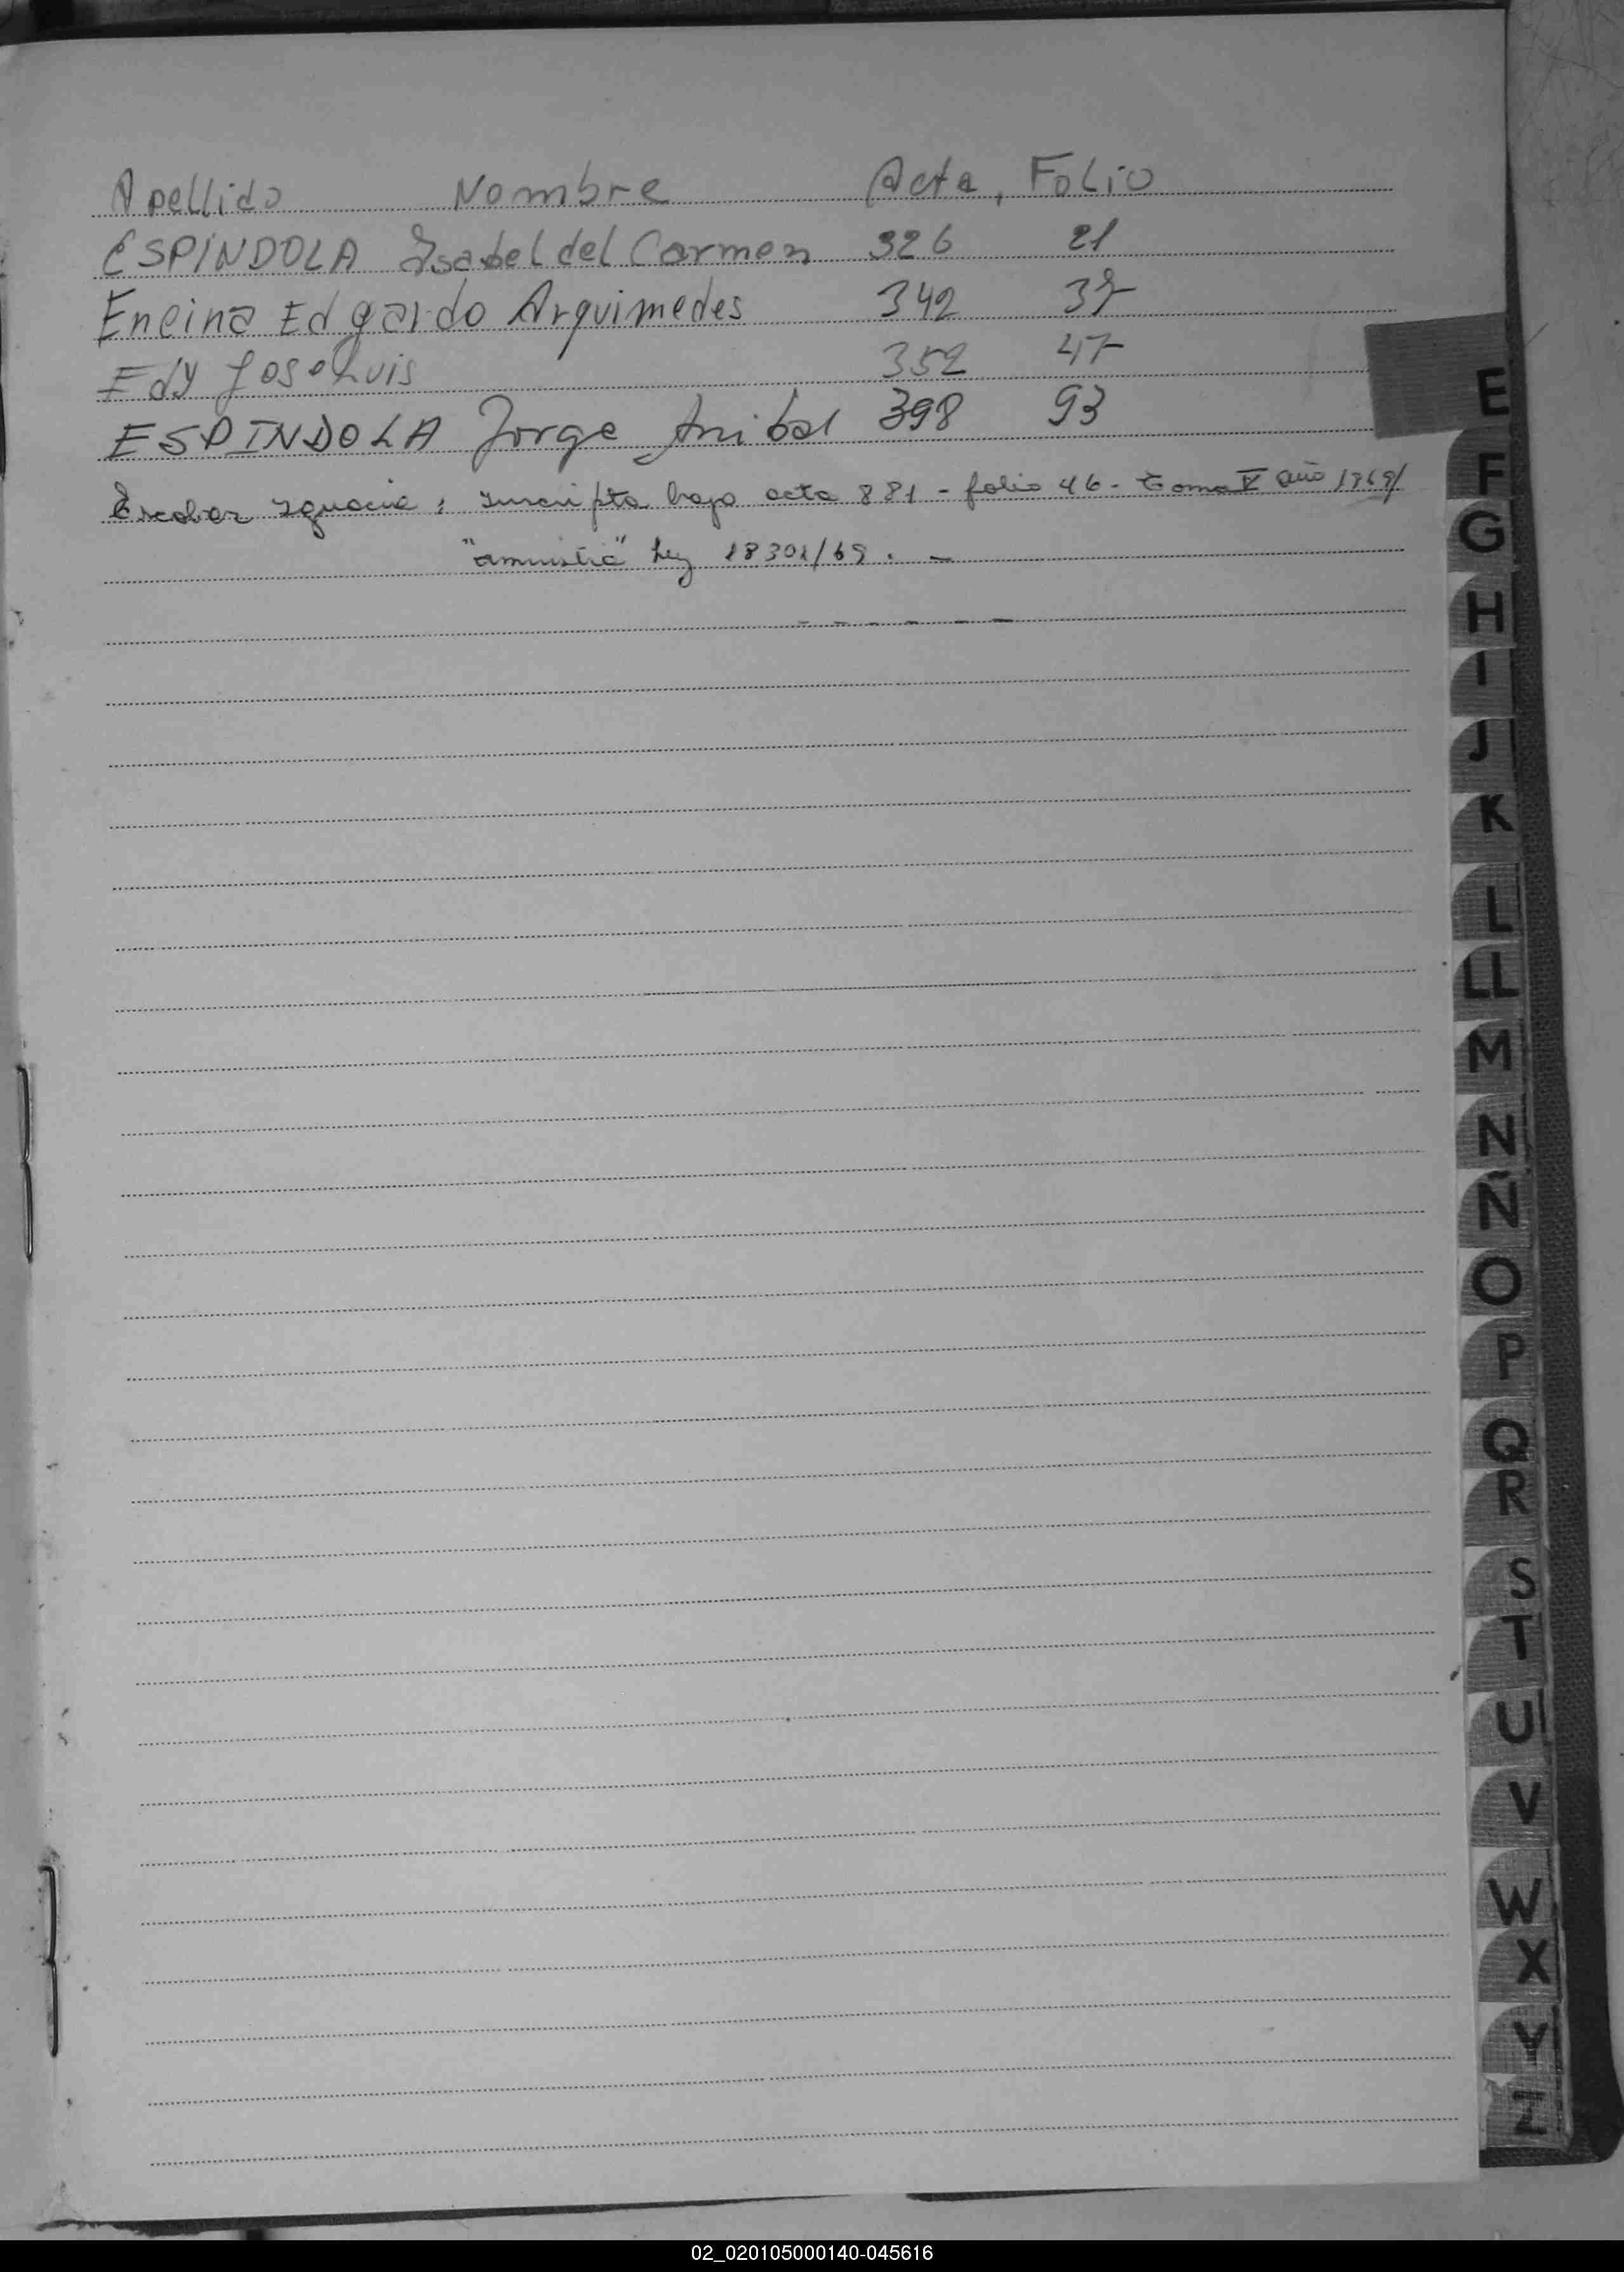 Apellido Nombre Acta, Folio
ESPÍNDOLA Isabel del Carmen 326 21
Encina Edgardo Arquimedes 342 37
Edy Jose Luis 352 47
ESPINDOLA Jorge Anibal 398 93
Escobar Ignacia; Inscripta bajo acta 881 - folio 46 - Tomo V año 1969/
"amnistia" Ley 18301/69. -
E
F
G
H
I
J
K
L
LL
M
N
Ñ
O
P
Q
R
S
T
U
V
W
X
Y
Z
02_020105000140-045616